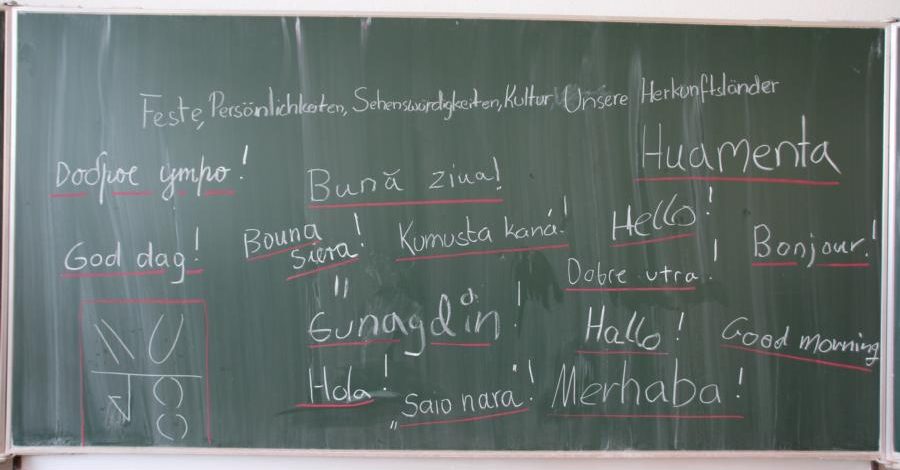 Feste, Persönlichkeiten, Sehenswürdigkeiten, Kultur, Unsere Herkunftsländer
Huamenta
Доброе утро!
Bună ziua!
Hello!
Bouna
Siera!
Kumusta kaná!
Bonjour!
God dag!
Dobre utra!
Günagdin!
Hallo!
Good morning
Hola!
„Saionara"!
Merhaba!